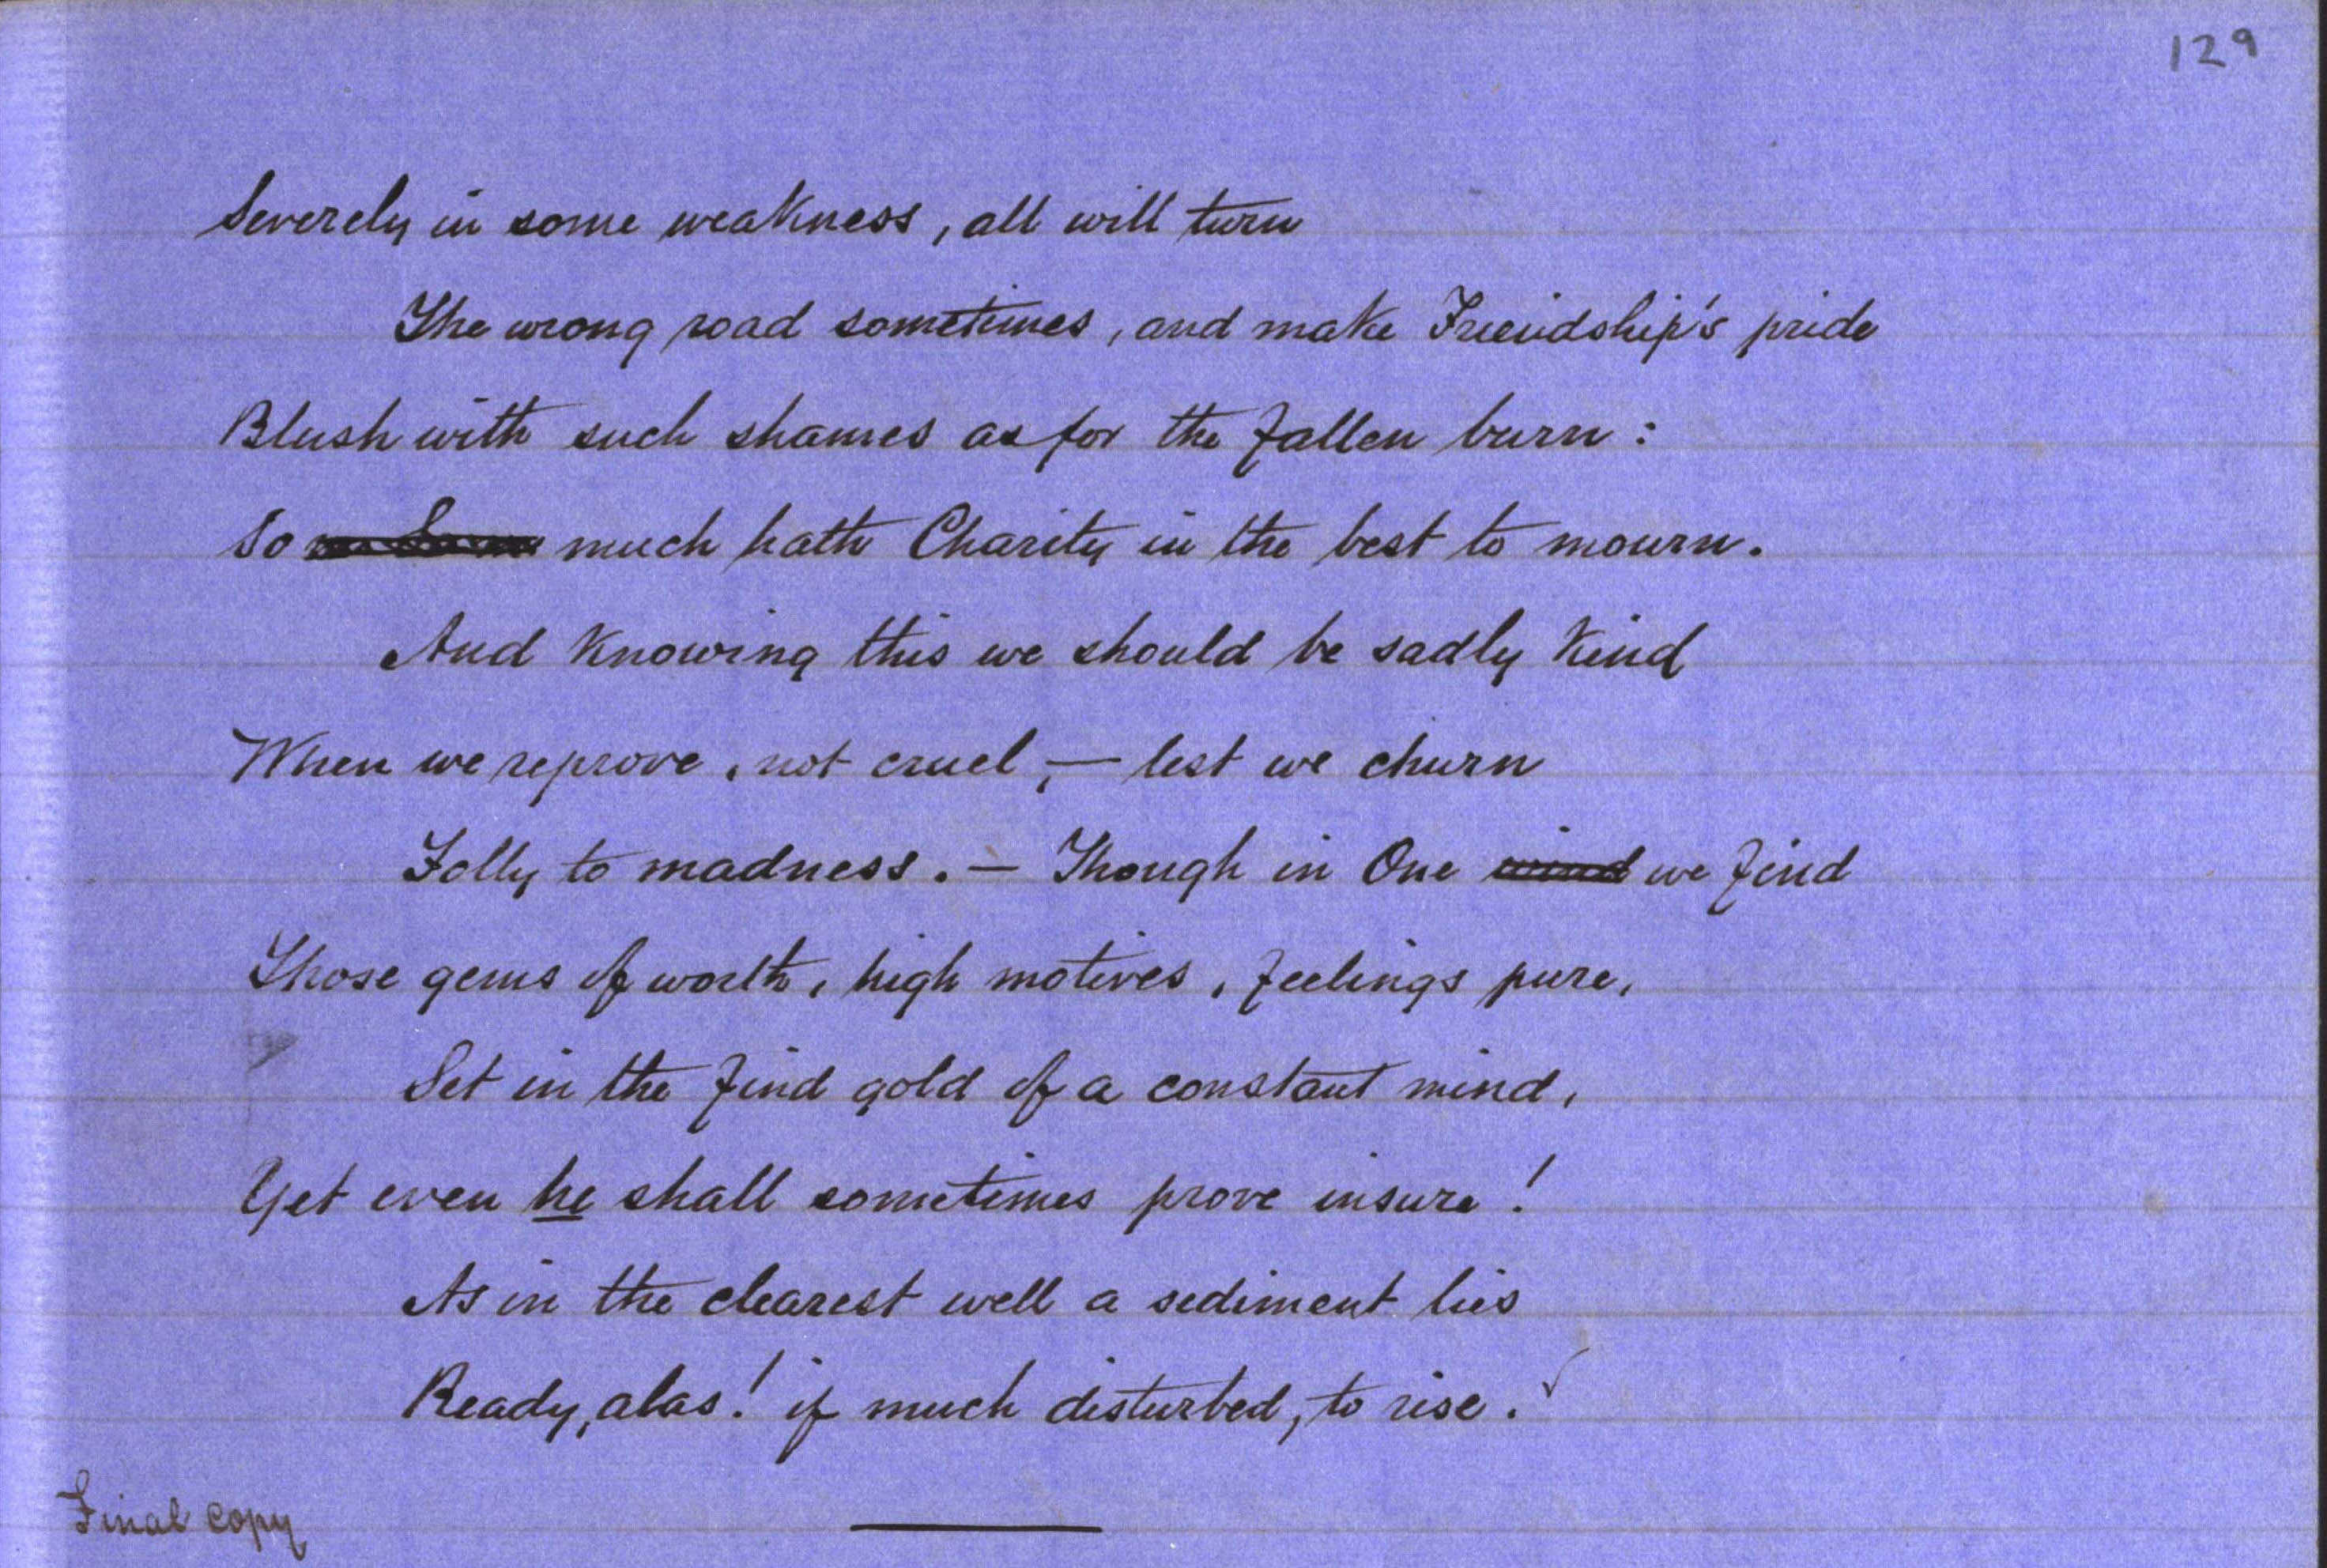 129
Severely in some weakness, all will turn
The wrong road sometimes, and make Friendship's pride
Blush with such shames as for the fallen burn:
So much hath Charity in the best to mourn.
And Knowing this we should be sadly Kind
When we reprove, not cruel,— lest we churn
Folly to madness.— Though in One mind we find
Those gems of worth, high motives, feelings pure,
Set in the find gold of a constant mind,
Yet even he shall sometimes prove insure!
As in the clearest well a sediment lies
Ready, alas! if much disturbed, to rise.
Final copy